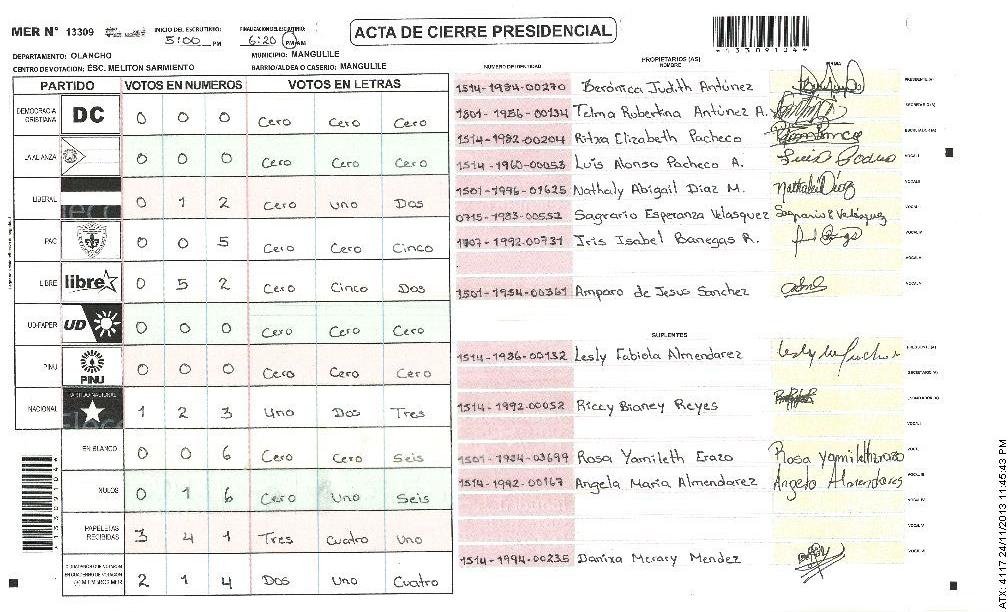 MER N° 13309 INICIO DEL ESCRUTINIO: 5:00 PM FINALIZACION DEL ESCRUTINIO: 6:20 PM AM
ACTA DE CIERRE PRESIDENCIAL
DEPARTAMENTO: OLANCHO MUNICIPIO: MANGULILE
CENTRO DE VOTACION: ESC. MELITON SARMIENTO BARRIO/ALDEA O CASERIO: MANGULILE
PARTIDO VOTOS EN NUMEROS VOTOS EN LETRAS
DEMOCRACIA CRISTIANA DC 0 0 0 Cero Cero Cero
LA ALIANZA 0 0 0 Cero Cero Cero
LIBERAL 0 1 2 Cero Uno Dos
PAC 0 0 5 Cero Cero Cinco
LIBRE libre 0 5 2 Cero Cinco Dos
UD-FAPER UD 0 0 0 Cero Cero Cero
PINU PINU 0 0 0 Cero Cero Cero
NACIONAL PARTIDO NACIONAL 1 2 3 Uno Dos Tres
EN BLANCO 0 0 6 Cero Cero Seis
NULOS 0 1 6 Cero Uno Seis
PAPELETAS RECIBIDAS 3 4 1 Tres Cuatro Uno
2 1 4 Dos Uno Cuatro
NUMERO DE IDENTIDAD PROPIETARIOS (AS) NOMBRE FIRMA
1514-1984-00270 Berónica Judith Antúnez PRESIDENTE (A)
1501-1986-00134 Telma Robertina Antúnez A. SECRETARIO (A)
1514-1982-00204 Ritxa Elizabeth Pacheco ESCRUTADOR (A)
1514-1960-00053 Luis Alonso Pacheco A. VOCAL I
1501-1996-01625 Nathaly Abigail Diaz M. Nathali Díaz
0715-1983-00552 Sagrario Esperanza Velasquez Sagrario E Velásquez
1807-1992-00731 Iris Isabel Banegas R.
1501-1954-00361 Amparo de Jesus Sanchez
SUPLENTES
1514-1986-00132 Lesly Fabiola Almendarez PRESIDENTE (A)
SECRETARIO (A)
1514-1992-00052 Riccy Bianey Reyes
1501-1984-03699 Rosa Yamileth Erazo Rosa Yamileth erazo
1514-1992-00167 Angela Maria Almendarez Angela Almendares
1514-1994-00235 Darixa Merary Mendez
ATX: 4117 24/11/2013 11:45:43 PM